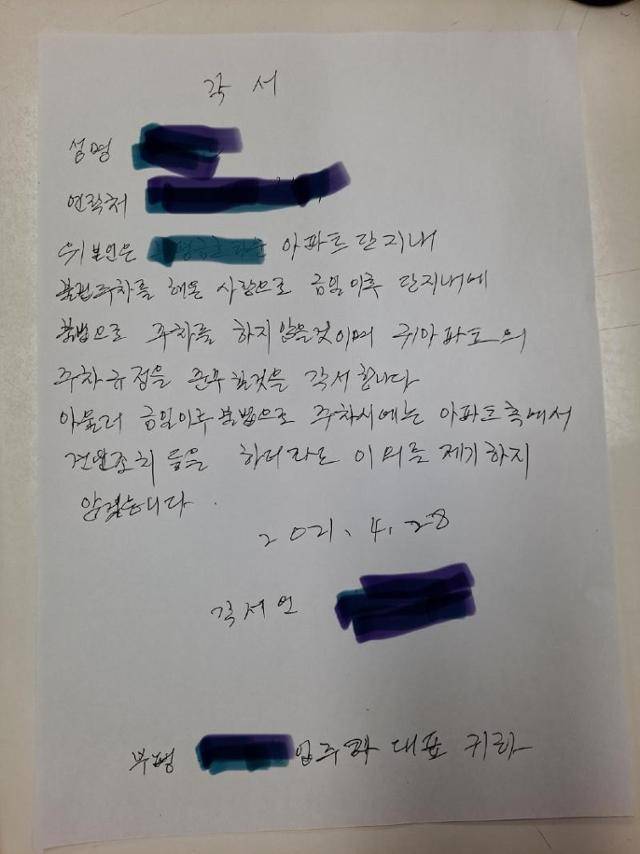 각서
성명
연락처
위 본인은 아파트 단지내
불법주차를 해온 사람으로 금일이후 단지내에
불법으로 주차를 하지 않을것이며 귀아파트의
주차규정을 준수할것을 각서합니다
아울러 금일이후 불법으로 주차시에는 아파트측에서
견인조치 등을 하더라도 이의를 제기하지
않겠습니다.
2021. 4. 28
각서인
부평 입주자 대표 귀하